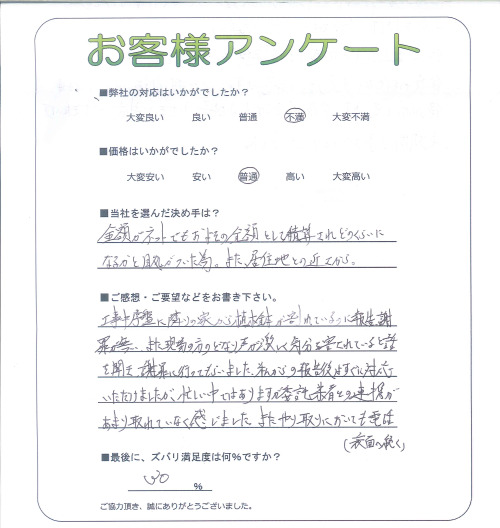 お客様アンケート
■弊社の対応はいかがでしたか？
大変良い 良い 普通 不満 大変不満
■価格はいかがでしたか？
大変安い 安い 普通 高い 大変高い
■当社を選んだ決め手は？
金額がネットでもおおよその金額として積算されどのくらいに
なるかと目処がついた為。また、居住地との近さから。
■ご感想・ご要望などをお書き下さい。
工事中序盤に隣りの家から植木鉢が割れているのに報告謝
罪が無い、また現場の方のどなり声が激しく気分を害されていると話
を聞き謝罪に行ってもらいました。私からの報告後はすぐに対応
いただけましたが、忙しい中ではありますが委託業者との連携が
あまり取れていなく感じました。またやり取りにおいても電話
(裏面へ続く)
■最後に、ズバリ満足度は何%ですか？
%
ご協力頂き、誠にありがとうございました。